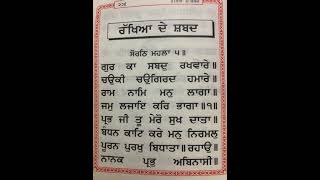 ਰੱਖਿਆ ਦੇ ਸ਼ਬਦ
ਸੋਰਠਿ ਮਹਲਾ ੫ ॥
ਗੁਰ ਕਾ ਸਬਦੁ ਰਖਵਾਰੇ ॥
ਚਉਕੀ ਚਉਗਿਰਦ ਹਮਾਰੇ ॥
ਰਾਮ ਨਾਮਿ ਮਨੁ ਲਾਗਾ ॥
ਜਮੁ ਲਜਾਇ ਕਰਿ ਭਾਗਾ ॥੧॥
ਪ੍ਰਭ ਜੀ ਤੂ ਮੇਰੋ ਸੁਖ ਦਾਤਾ ॥
ਬੰਧਨ ਕਾਟਿ ਕਰੇ ਮਨੁ ਨਿਰਮਲੁ
ਪੂਰਨ ਪੁਰਖੁ ਬਿਧਾਤਾ ॥ ਰਹਾਉ ॥
ਨਾਨਕ ਪ੍ਰਭੁ ਅਬਿਨਾਸੀ ॥